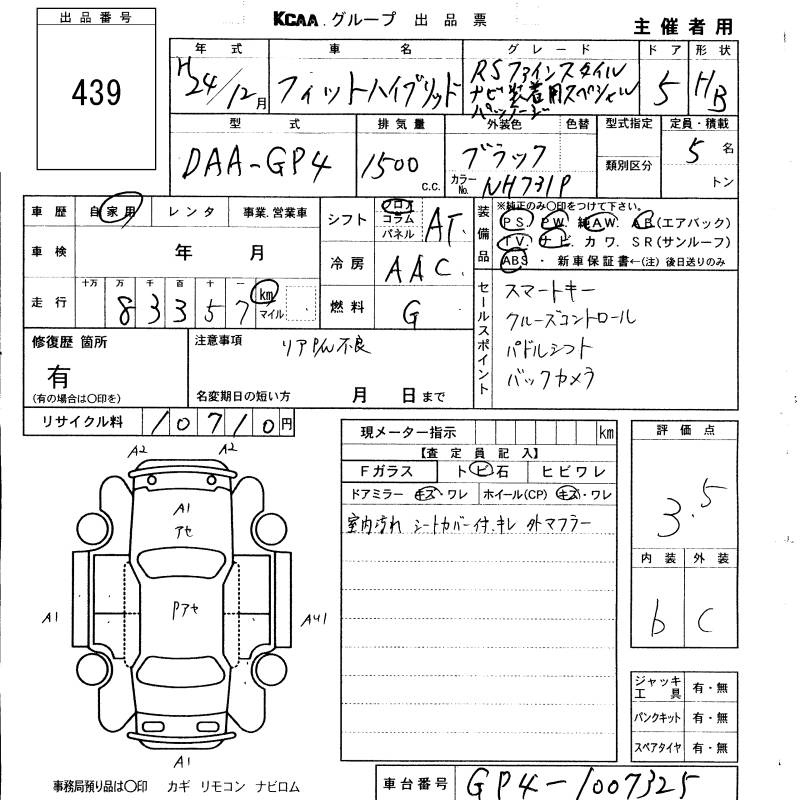 出品番号
439
KCAA グループ 出品票
主催者用
年式 車名 グレード ドア 形状
H24/12月 フィットハイブリッド RSファインスタイル 5 HB
ナビ装着用スペシャル
パッケージ
型式 排気量 外装色 色替 型式指定 定員・積載
DAA-GP4 1500 C.C. ブラック 類別区分 5名
カラーNo. NH731P トン
車歴 自家用 レンタ 事業.営業車
車検 年 月
走行 十万 万 千 百 十 一
83357 km マイル
シフト フロア コラム パネル AT
冷房 AAC
燃料 G
装備品
※純正のみ〇印をつけて下さい。
PS. PW. 純AW. AB(エアバック)
TV. ナビ. カワ. SR(サンルーフ)
ABS ・ 新車保証書←(注) 後日送りのみ
セールスポイント
スマートキー
クルーズコントロール
パドルシフト
バックカメラ
修復歴 箇所
有
(有の場合は〇印を)
注意事項
リアP/W不良
名変期日の短い方 月 日まで
リサイクル料 10710円
現メーター指示 km
【査定員記入】
Fガラス トビ石 ヒビワレ
ドアミラー キズ・ワレ ホイール(CP) キズ・ワレ
室内汚れ シートカバー付.キレ 外マフラー
評価点
3.5
内装 外装
b C
A2 A2
A1
アセ
Pアセ
A1 AU1
A1
ジャッキ工具 有・無
パンクキット 有・無
スペアタイヤ 有・無
事務局預り品は〇印 カギ リモコン ナビロム
車台番号 GP4-1007325